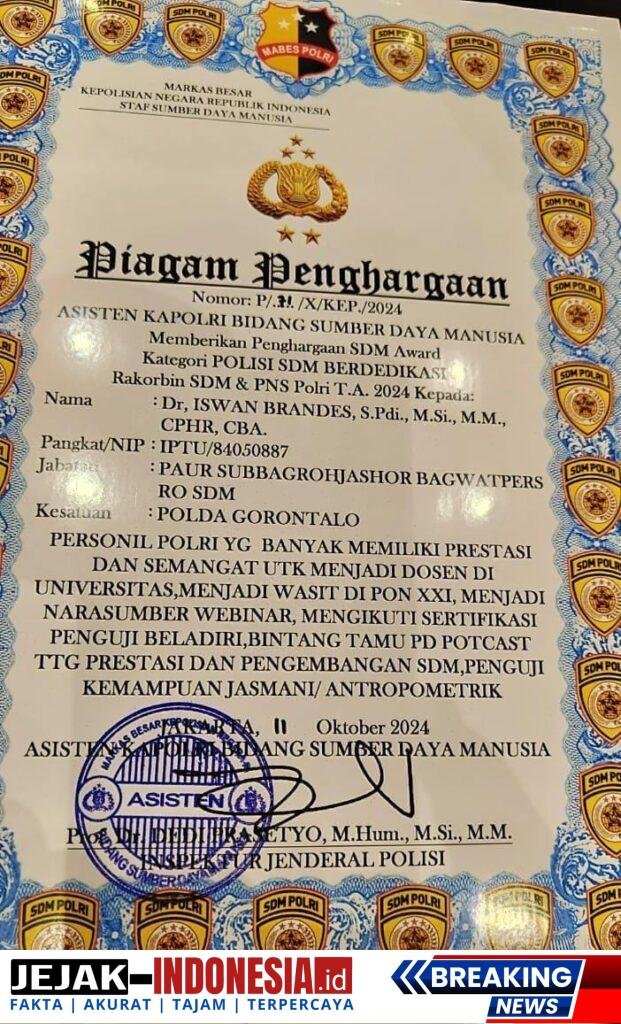 MABES POLRI
MARKAS BESAR
KEPOLISIAN NEGARA REPUBLIK INDONESIA
STAF SUMBER DAYA MANUSIA
Piagam Penghargaan
Nomor: P/.31./X/KEP./2024
ASISTEN KAPOLRI BIDANG SUMBER DAYA MANUSIA
Memberikan Penghargaan SDM Award
Kategori POLISI SDM BERDEDIKASI
Rakorbin SDM & PNS Polri T.A. 2024 Kepada:
Nama : Dr, ISWAN BRANDES, S.Pdi., M.Si., M.M.,
CPHR, CBA.
Pangkat/NIP : IPTU/84050887
Jabatan : PAUR SUBBAGROHJASHOR BAGWATPERS
RO SDM
Kesatuan : POLDA GORONTALO
PERSONIL POLRI YG BANYAK MEMILIKI PRESTASI
DAN SEMANGAT UTK MENJADI DOSEN DI
UNIVERSITAS,MENJADI WASIT DI PON XXI, MENJADI
NARASUMBER WEBINAR, MENGIKUTI SERTIFIKASI
PENGUJI BELADIRI,BINTANG TAMU PD POTCAST
TTG PRESTASI DAN PENGEMBANGAN SDM,PENGUJI
KEMAMPUAN JASMANI/ ANTROPOMETRIK
JAKARTA, 11 Oktober 2024
ASISTEN KAPOLRI BIDANG SUMBER DAYA MANUSIA
ASISTEN
BIDANG SUMBER DAYA MANUSIA
Prof. Dr. DEDI PRASETYO, M.Hum., M.Si., M.M.
INSPEKTUR JENDERAL POLISI
SDM POLRI
JEJAK-INDONESIA.id
FAKTA | AKURAT | TAJAM | TERPERCAYA
BREAKING
NEWS